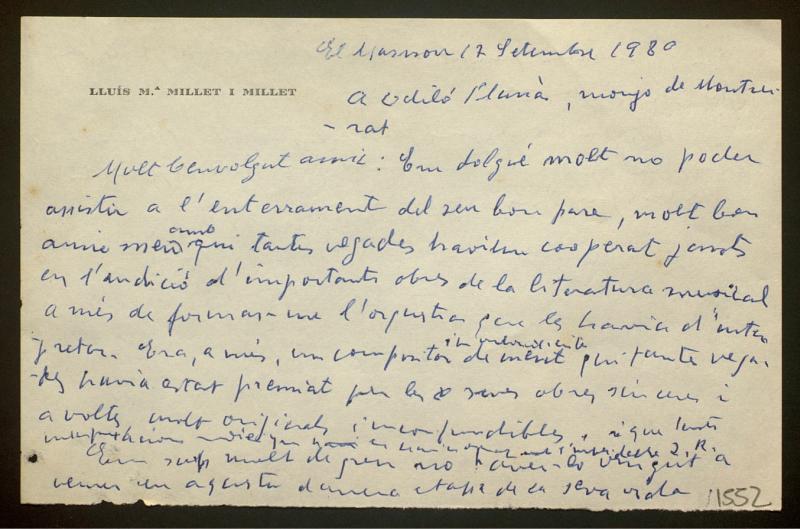 El Masnou 17 Setembre 1980
LLUÍS M.ª MILLET I MILLET
A Odiló Planàs, monjo de Montser-
-rat
Molt benvolgut amic: Em dolgué molt no poder
assistir a l'enterrament del seu bon pare, molt bon
amic meu amb qui tantes vegades havíem cooperat junts
en l'audició d'importants obres de la literatura musical
a més de formar-me l'orquestra que les havia d'inter-
pretar. Era, a més, un compositor de mèrit qui tante vega-
des havia estat premiat per les seves obres sinceres i
a voltes molt originals, inconfundibles, i que
Em sap molt de greu no haver-lo vingut a
veure en aquesta darrera etapa de la seva vida
11552